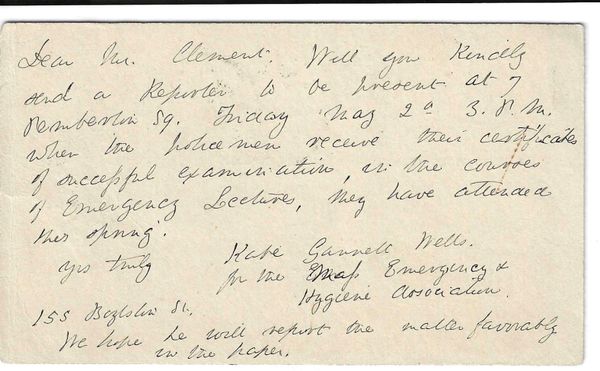 Dear Mr. Clement. Will you Kindly
send a Reporter to be present at 7
Pemberton Sq. Friday May 2d 3. P.M.
when the policemen receive their certificates
of successful examination, in the courses
of Emergency Lectures, they have attended
this spring.
Yrs truly Kate Gannett Wells.
for the Mass Emergency &
Hygiene Association.
155 Boylston St.
We hope he will report the matter favorably
in the paper.